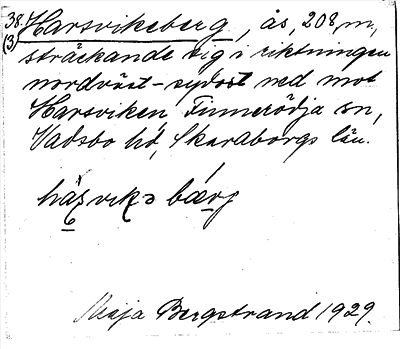 38. Harsvikeberg, ås, 208 m,
(3) sträckande sig i riktningen
nordväst-sydost ned mot
Harsviken Finnerödja sn,
Vadsbo hd, Skaraborgs län.
vikə bærj
Maja Bergstrand 1929.